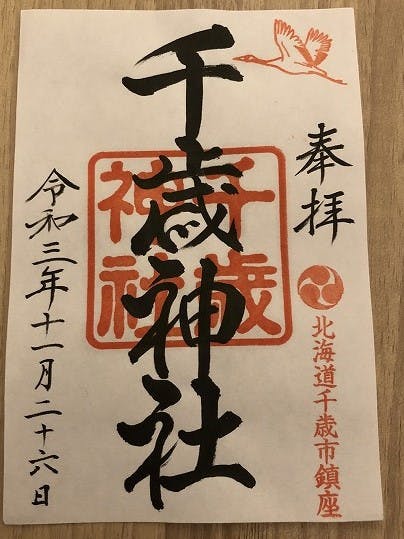 奉拝
北海道千歳市鎮座
千歳神社
千歳
神社
令和三年十一月二十六日